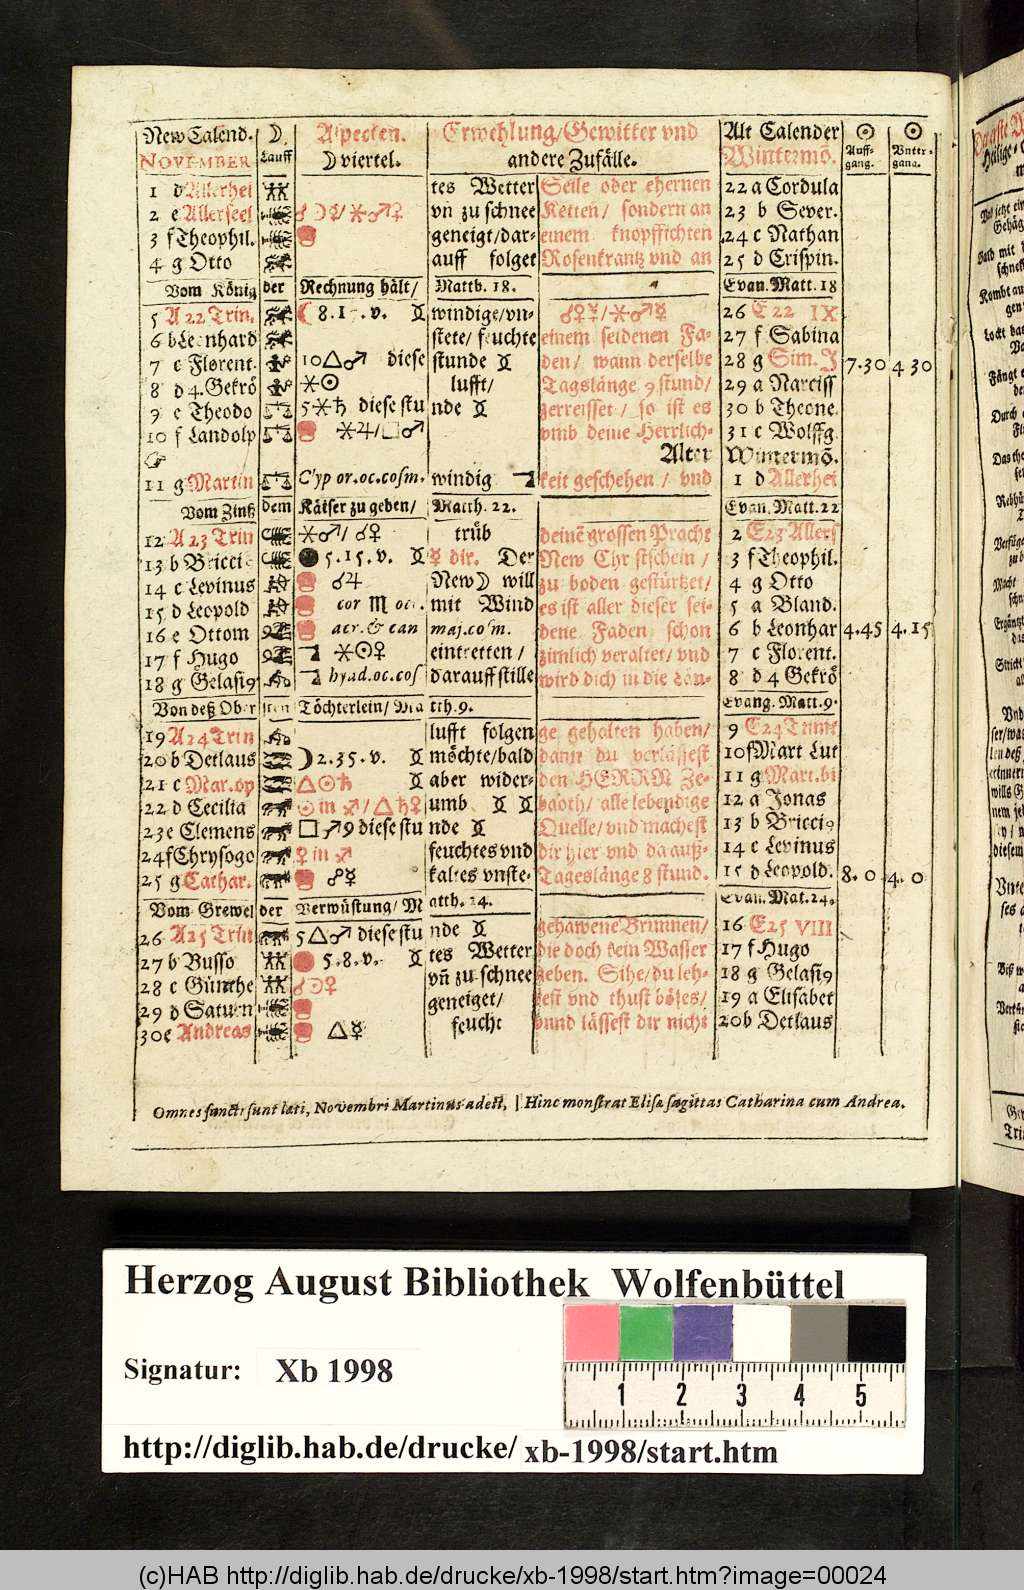 New Calend. ☽. Aspecten. Erwehlung/Gewitter vnd Alt Calender ☉ ☉
NOVEMBER Lauff ☽ viertel. andere Zufälle. Wintermõ. Auff-gang. Vnter-gang.
1 d Allerhei tes Wetter Seile oder ehernen 22 a Cordula
2 e Allerseel ☌☽☿/⚹♂♀ vñ zu schnee Ketten/ sondern an 23 b Sever.
3 f Theophil. geneigt/dar- einem knopffichten 24 c Nathan
4 g Otto auff folget Rosenkrantz vnd an 25 d Crispin.
Vom König der Rechnung hält/ Matth. 18. Evan. Matt. 18
5 A 22 Trin. windige/vn- ☌♀☿/⚹♂☿ 26 E 22 IX
6 b Leonhard stete/feuchte einem seidenen Fa- 27 f Sabina
7 c Florent. 10△♂ diese stunde den/ wann derselbe 28 g Sim. J 7.30 4 30
8 d 4. Gekrö ⚹☉ lufft/ Tagslänge 9 stund/ 29 a Narciss
9 e Theodo 5⚹♄ diese stu nde zerreisset/ so ist es 30 b Theone.
10 f Landolp ⚹♃/□♂ vmb deine Herrlich- 31 c Wolffg.
☞ Alter Wintermõ.
11 g Martin windig keit geschehen/ vnd 1 d Allerhei
Vom Zinß dem Käiser zu geben/ Matth. 22. Evan. Matt. 22
12 A 23 Trin ⚹♂/☌♀ trüb deinẽ grossen Pracht 2 E 23 Allers
13 b Bricci 5.15.v. ☿ dir. Der New Chr stschein/ 3 f Theophil.
14 c Levinus ☌♃ New☽ will zu boden gestürtzet/ 4 g Otto
15 d Leopold cor ♏ mit Wind es ist aller dieser sei- 5 a Bland.
16 e Ottom acr. & can maj. cosm. dene Faden schon 6 b Leonhar 4.45 4.15
17 f Hugo ⚹☉♀ eintretten/ zimlich veraltet/ vnd 7 c Florent.
18 g Gelasi9 hyad.oc.cos darauff stille wird dich in die Län- 8 d 4 Gekrö
Von deß Ober sten Töchterlein/ Ma tth. 9. Evang. Matt. 9.
19 A 24 Trin lufft folgen ge gehalten haben/ 9 E 24 Trinit
20 b Detlaus ☽2.35.v. möchte/bald dann du verlässest 10 f Mart Lut
21 c Mar. op △☉♄ aber wider- den HERRN Ze- 11 g Mart. bi
22 d Cecilia ☉ in ♐/△♄♀ umb baoth/ alle lebendige 12 a Jonas
23 e Clemens □♂ 9 diese stu nde Quelle/ vnd machest 13 b Bricci9
24 f Chrysogo ♀ in ♐ feuchtes vnd dir hier vnd da auß- 14 c Levinus
25 g Cathar. ☍☿ kaltes vnste- Tageslänge 8 stund. 15 d Leopold. 8. 0 4. 0
Vom Grewel der Verwüstung/ M atth. 24. Evan. Mat. 24.
26 A 25 Trin 5△♂ diese stu nde gehawene Brunnen/ 16 E 25 VIII
27 b Busso 5.8.v. tes Wetter die doch kein Wasser 17 f Hugo
28 c Günthe ☌☉♀ vñ zu schnee geben. Sihe/ du leh- 18 g Gelasi9
29 d Saturn geneiget/ rest vnd thust böses/ 19 a Elisabet
30 e Andreas △☿ feucht vnnd lässest dir nicht 20 b Detlaus
Omnes sancti sunt læti, Novembri Martinus adest, | Hinc monstrat Elisa sagittas Catharina cum Andrea.
Herzog August Bibliothek Wolfenbüttel
Signatur: Xb 1998
1 2 3 4 5
http://diglib.hab.de/drucke/ xb-1998/start.htm
(c)HAB http://diglib.hab.de/drucke/xb-1998/start.htm?image=00024